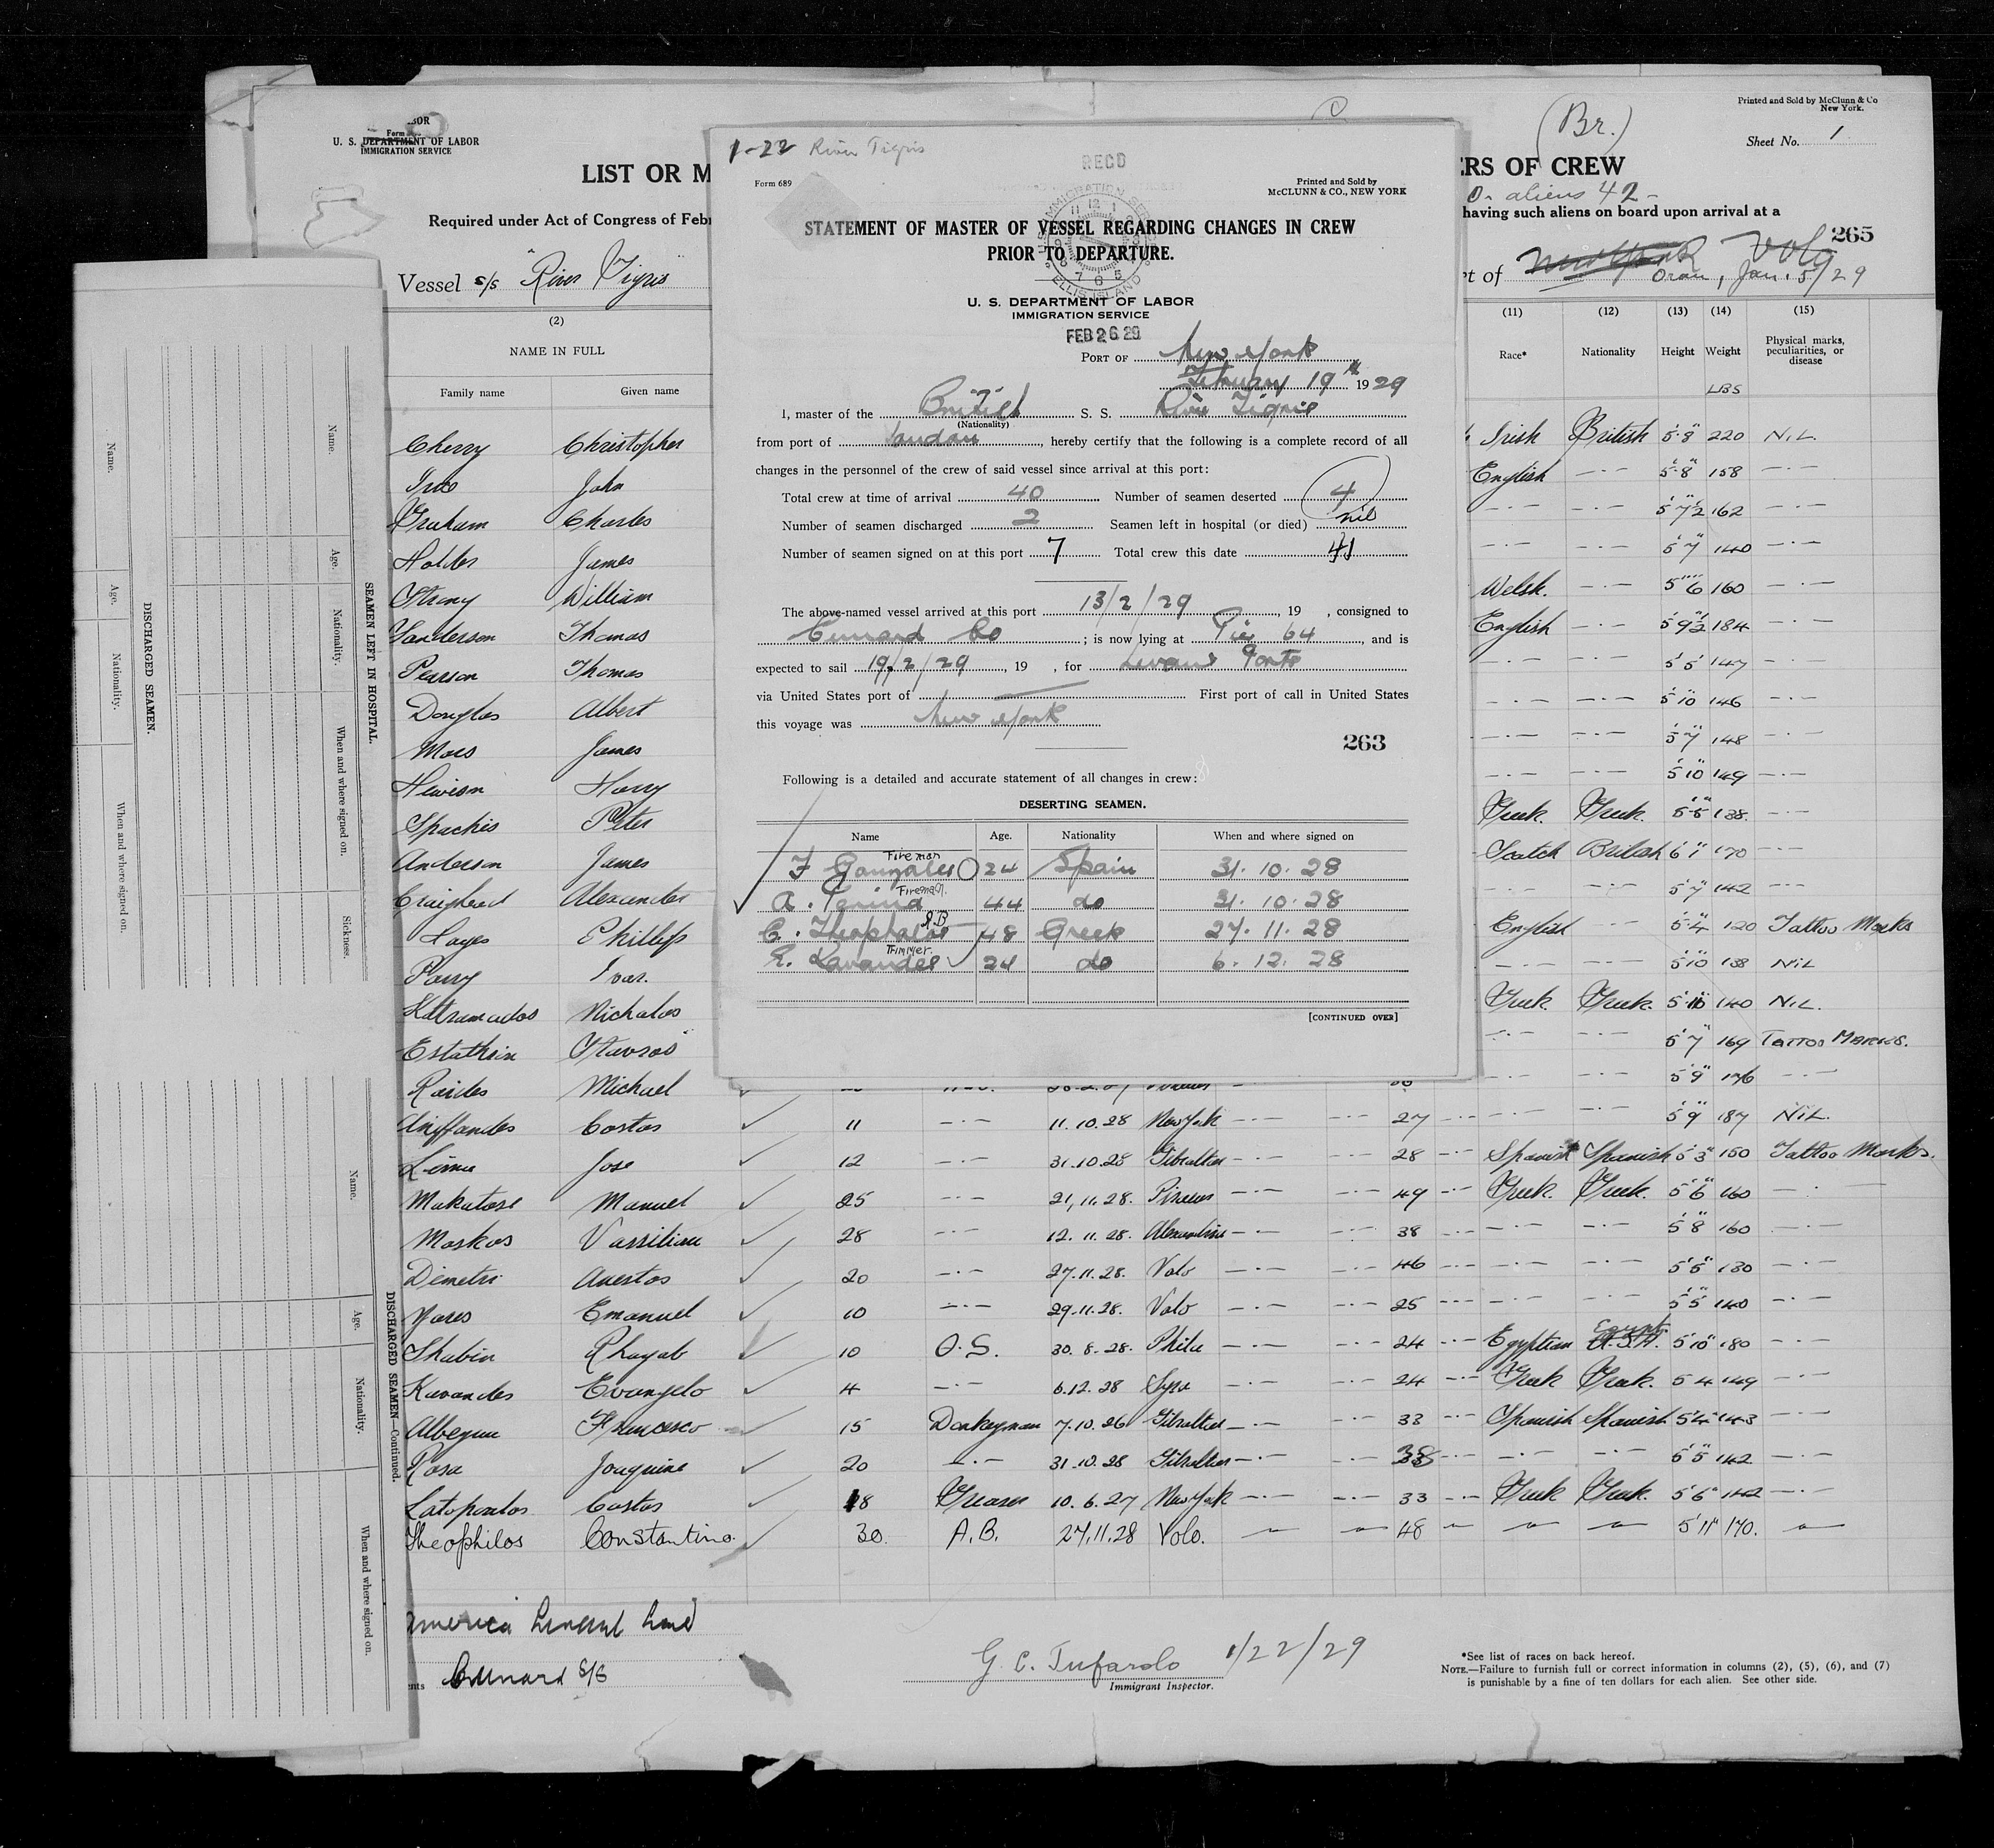 U. S. DEPARTMENT OF LABOR
IMMIGRATION SERVICE
LIST OR M
Required under Act of Congress of Febr
Vessel s/s "River Tigris
(2)
NAME IN FULL
Family name Given name
Cherry Christopher
John
Graham Charles
Holder James
William
Sanderson Thomas
Pearson Thomas
Douglas Albert
James
Hewison Harry
Spachis Peter
Anderson James
Craighead Alexander
Phillip
Parry Ivor.
Nicholas
Stavros
Michael
1-22 River Tigris
RECD
Form 689
Printed and Sold by
McCLUNN & CO., NEW YORK
STATEMENT OF MASTER OF VESSEL REGARDING CHANGES IN CREW
PRIOR TO DEPARTURE.
IMMIGRATION SERVICE
ELLIS ISLAND
U. S. DEPARTMENT OF LABOR
IMMIGRATION SERVICE
FEB 26 29
PORT OF New York
February 19th 1929
I, master of the British S. S. River Tigris
(Nationality)
from port of London, hereby certify that the following is a complete record of all
changes in the personnel of the crew of said vessel since arrival at this port:
Total crew at time of arrival 40 Number of seamen deserted 4
Number of seamen discharged 2 Seamen left in hospital (or died) nil
Number of seamen signed on at this port 7 Total crew this date 41
The above-named vessel arrived at this port 13/2/29, 19 , consigned to
Cunard Co ; is now lying at Pier 64, and is
expected to sail 19/2/29, 19 , for Levant Ports
via United States port of First port of call in United States
this voyage was New York
263
Following is a detailed and accurate statement of all changes in crew:
DESERTING SEAMEN.
Name Age. Nationality When and where signed on
F Gonzales Fireman 24 Spain 31. 10. 28
A. Fireman 44 do 31. 10. 28
C. A.B 48 Greek 27. 11. 28
Trimmer 24 do 6. 12. 28
[CONTINUED OVER]
Printed and Sold by McClunn & Co
New York.
(Br.)
Sheet No. 1
ERS OF CREW
aliens 42-
having such aliens on board upon arrival at a
265
rt of New York Volo
Oran, Jan. 5/29
(11) (12) (13) (14) (15)
Race* Nationality Height Weight Physical marks, peculiarities, or disease
LBS
Irish British 5'8" 220 NiL.
English -·- 5'8" 158 -·-
-·- -·- 5'7½" 162 -·-
-·- -·- 5'7" 140 -·-
Welsh. -·- 5'6" 160 -·-
English -·- 5'9½" 184 -·-
-·- -·- 5'5" 147 -·-
-·- -·- 5'10" 146 -·-
-·- -·- 5'7" 148 -·-
-·- -·- 5'10" 149 -·-
Greek. Greek. 5'5" 138 -·-
Scotch British 6'1" 170 -·-
-·- -·- 5'7" 142 -·-
English 5'4" 120 Tattoo Marks
-·- -·- 5'10" 138 NiL
Greek. Greek. 140 NiL.
-·- -·- 5'7" 169 Tattoo Marks.
-·- -·- 5'9" 176 -·-
Costas 11 -·- 11.10.28 New York -·- -·- 27 -·- -·- -·- 5'9" 187 NiL.
Jose 12 -·- 31.10.28 Gibraltar -·- -·- 28 -·- Spanish Spanish 5'3" 150 Tattoo Marks.
Manuel 25 -·- 21.11.28. Piraeus -·- -·- 49 -·- Greek. Greek. 5'6" 160 -·-
Moskos Vassiliou 28 -·- 12.11.28. Alexandria -·- -·- 38 -·- -·- -·- 5'8" 160 -·-
Demetri 20 -·- 27.11.28. Volo -·- -·- 46 -·- -·- -·- 5'5" 130 -·-
Emanuel 10 -·- 29.11.28. Volo -·- -·- 25 -·- -·- -·- 5'5" 140 -·-
Shabin Rhayab 10 O.S. 30.8.28. Phila -·- -·- 24 -·- Egyptian Egypt U.S.A. 5'10" 180 -·-
Kavandes Evangelo 4 -·- 6.12.28 Syra -·- -·- 24 -·- Greek Greek. 5'4 149 -·-
Francesco 15 Donkeyman 7.10.26 Gibraltar -·- -·- 33 -·- Spanish Spanish 5'4" 143 -·-
Rosa Joaquine 20 -·- 31.10.28 Gibraltar -·- -·- 38 -·- -·- -·- 5'5" 142 -·-
Latopoulos Costas 18 Greaser 10.6.27 New York -·- -·- 33 -·- Greek Greek. 5'6" 142 -·-
Theophilos Constantino. 30. A.B. 27.11.28 Volo. 48 5'11" 170.
America Levant Line
ents Cunard S/S
G. C. Tufarolo 1/22/29
Immigrant Inspector.
*See list of races on back hereof.
NOTE.—Failure to furnish full or correct information in columns (2), (5), (6), and (7)
is punishable by a fine of ten dollars for each alien. See other side.
SEAMEN LEFT IN HOSPITAL.
Name. Age. Nationality. When and where signed on. Sickness.
DISCHARGED SEAMEN.
Name. Age. Nationality. When and where signed on.
DISCHARGED SEAMEN—Continued.
Name. Age. Nationality. When and where signed on.